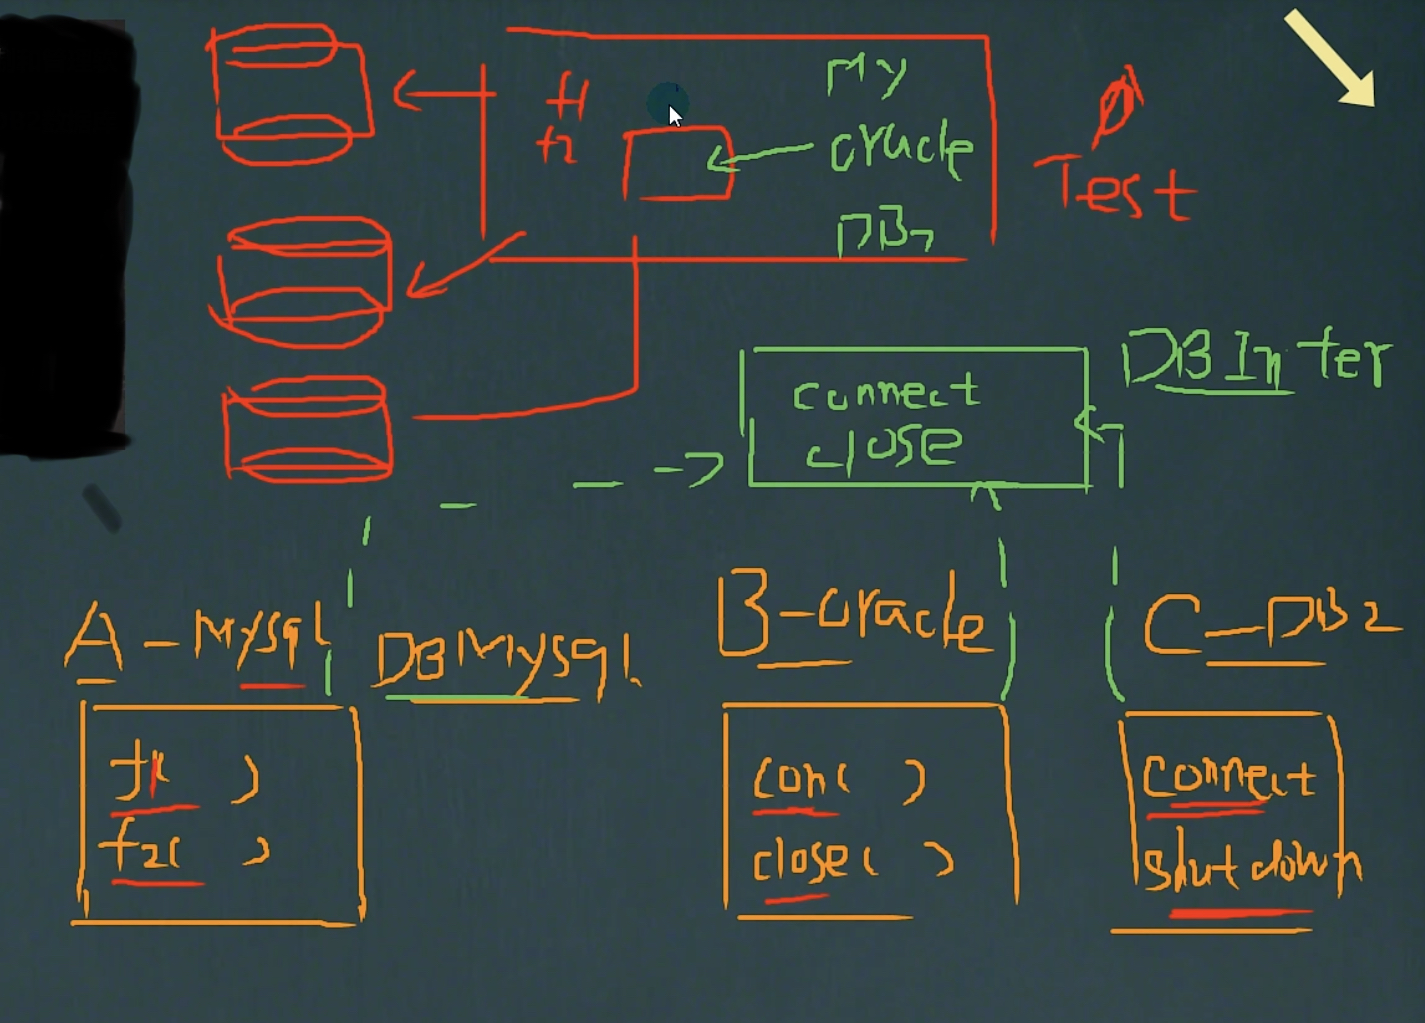 f1
f2
My
oracle
DB2
Test
DBInter
connect
close
A - Mysql
DBMysql
B - oracle
C - DB2
f1( )
f2( )
con( )
close( )
connect
shutdown